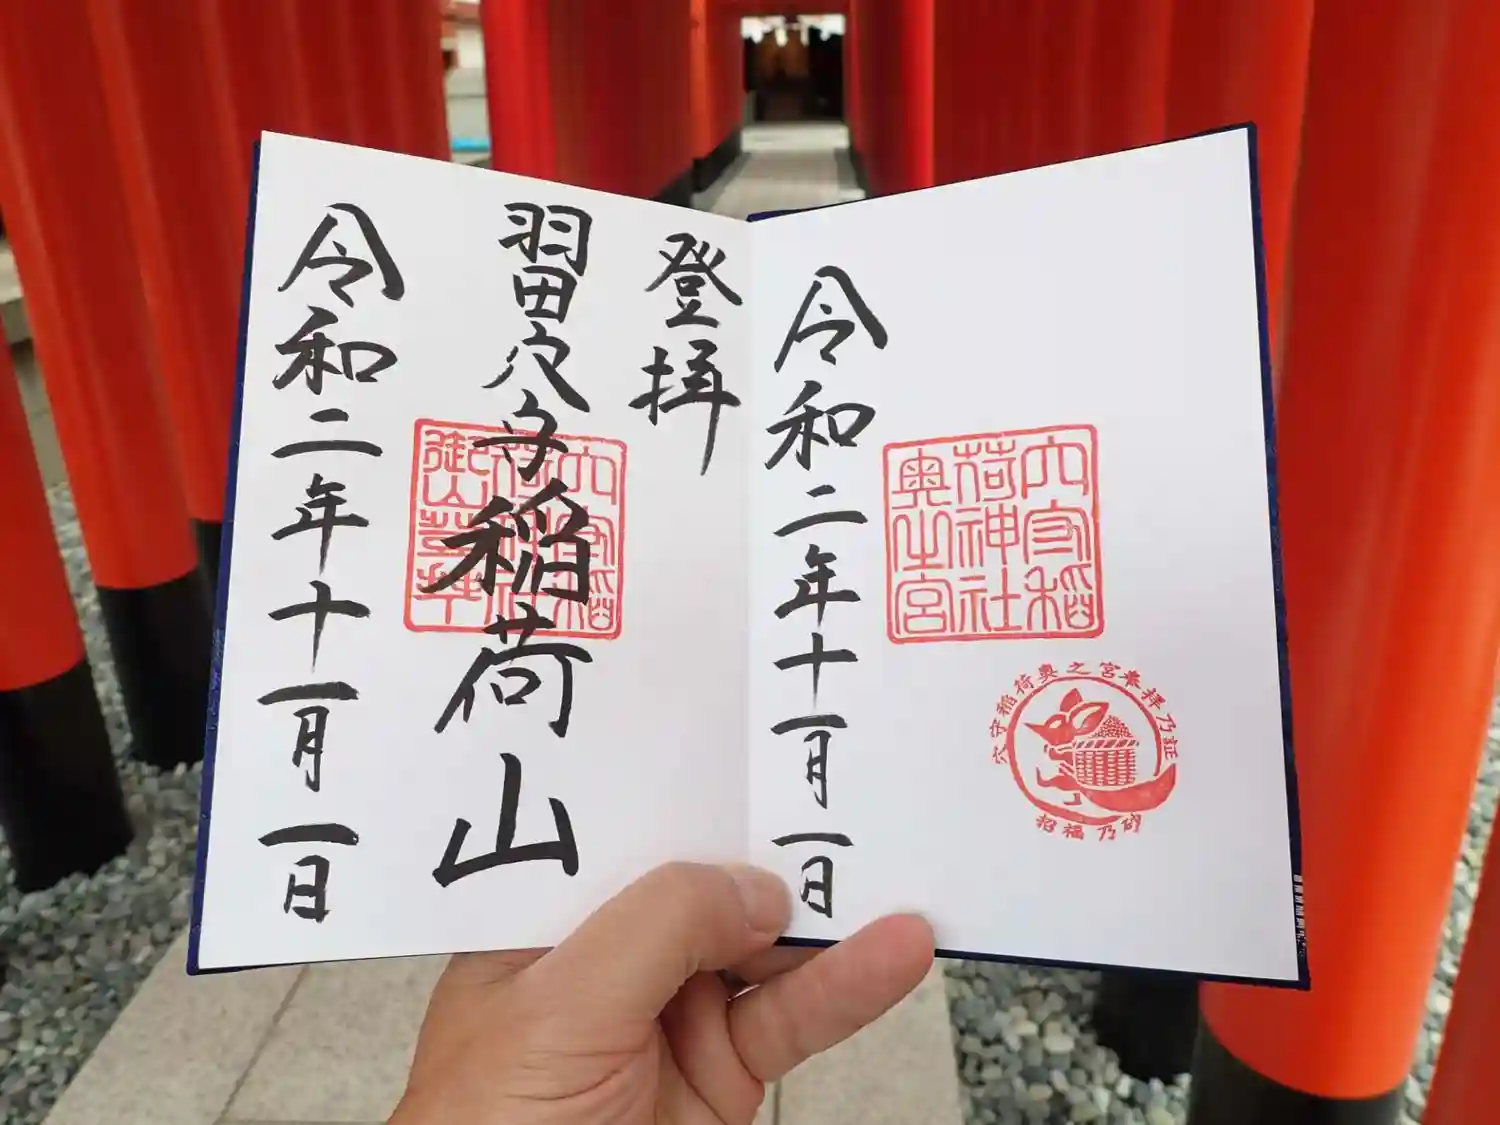 穴守稲
荷神社
奥之宮
穴守稲荷奥之宮奉拝乃証
招福乃砂
令和二年十一月一日
登拝
羽田穴守稲荷山
穴守稲
荷神社
御山登拝
令和二年十一月一日